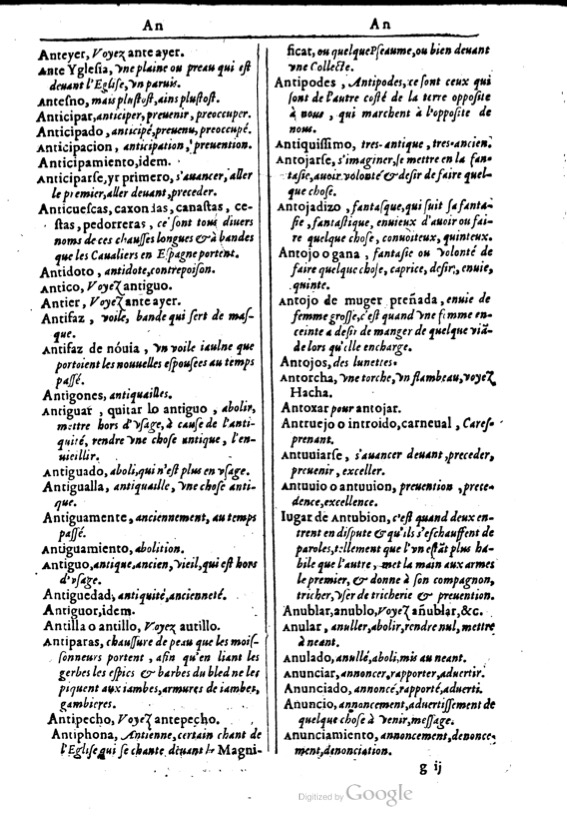 An
Anteyer, Voyez ante ayer.
Ante Yglesia, vne plaine ou preau qui est
deuant l'Eglise, vn paruis.
Antesno, mais plustost, ains plustost.
Anticipar, anticiper, preuenir, preoccuper.
Anticipado, anticipé, preuenu, preoccupé.
Anticipacion, anticipation, preuention.
Anticipamiento, idem.
Anticiparse, yr primero, s'auancer, aller
le premier, aller deuant, preceder.
Anticuescas, caxonias, canastas, ce-
stas, pedorreras, ce sont tous diuers
noms de ces chausses longues & à bandes
que les Caualiers en Espagne portent.
Antidoto, antidote, contrepoison.
Antico, Voyez antiguo.
Antier, Voyez ante ayer.
Antifaz, voile, bande qui sert de mas-
que.
Antifaz de nóuia, vn voile iaulne que
portoient les nouuelles espousees au temps
passé.
Antigones, antiquailles.
Antiguar, quitar lo antiguo, abolir,
mettre hors d'vsage, à cause de l'anti-
quité, rendre vne chose antique, l'en-
uieillir.
Antiguado, aboli, qui n'est plus en vsage.
Antigualla, antiquaille, vne chose anti-
que.
Antiguamente, anciennement, au temps
passé.
Antiguamiento, abolition.
Antiguo, antique, ancien, vieil, qui est hors
d'vsage.
Antiguedad, antiquité, ancienneté.
Antiguor, idem.
Antilla o antillo, Voyez autillo.
Antiparas, chaussure de peau que les mois-
sonneurs portent, afin qu'en liant les
gerbes les espics & barbes du bled ne les
piquent aux iambes, armures de iambes,
gambieres.
Antipecho, Voyez antepecho.
Antiphona, Antienne, certain chant de
l'Eglise qui se chante deuant le Magni-
An
ficat, ou quelque Pseaume, ou bien deuant
vne Collecte.
Antipodes, Antipodes, ce sont ceux qui
sont de l'autre costé de la terre opposite
à nous, qui marchent à l'opposite de
nous.
Antiquissimo, tres-antique, tres-ancien.
Antojarse, s'imaginer, se mettre en la fan-
tasie, auoir volonté & desir de faire quel-
que chose.
Antojadizo, fantasque, qui suit sa fanta-
sie, fantastique, enuieux d'auoir ou fai-
re quelque chose, conuoiteux, quinteux.
Antojo o gana, fantasie ou volonté de
faire quelque chose, caprice, desir, enuie,
quinte.
Antojo de muger preñada, enuie de
femme grosse, c'est quand vne femme en-
ceinte a desir de manger de quelque viã-
de lors qu'elle encharge.
Antojos, des lunettes.
Antorcha, vne torche, vn flambeau, voyez
Hacha.
Antoxar pour antojar.
Antruejo o introido, carneual, Cares-
prenant.
Antuuiarse, s'auancer deuant, preceder,
preuenir, exceller.
Antuuio o antuuion, preuention, prece-
dence, excellence.
Iugar de Antubion, c'est quand deux en-
trent en dispute & qu'ils s'eschauffent de
paroles, tellement que l'vn estãt plus ha-
bile que l'autre, met la main aux armes
le premier, & donne à son compagnon,
tricher, vser de tricherie & preuention.
Anublar, anublo, Voyez añublar, &c.
Anular, anuller, abolir, rendre nul, mettre
à neant.
Anulado, anullé, aboli, mis au neant.
Anunciar, annoncer, rapporter, aduertir.
Anunciado, annoncé, rapporté, aduerti.
Anuncio, annoncement, aduertissement de
quelque chose à venir, message.
Anunciamiento, annoncement, denonce-
ment, denonciation.
g ij
Digitized by Google